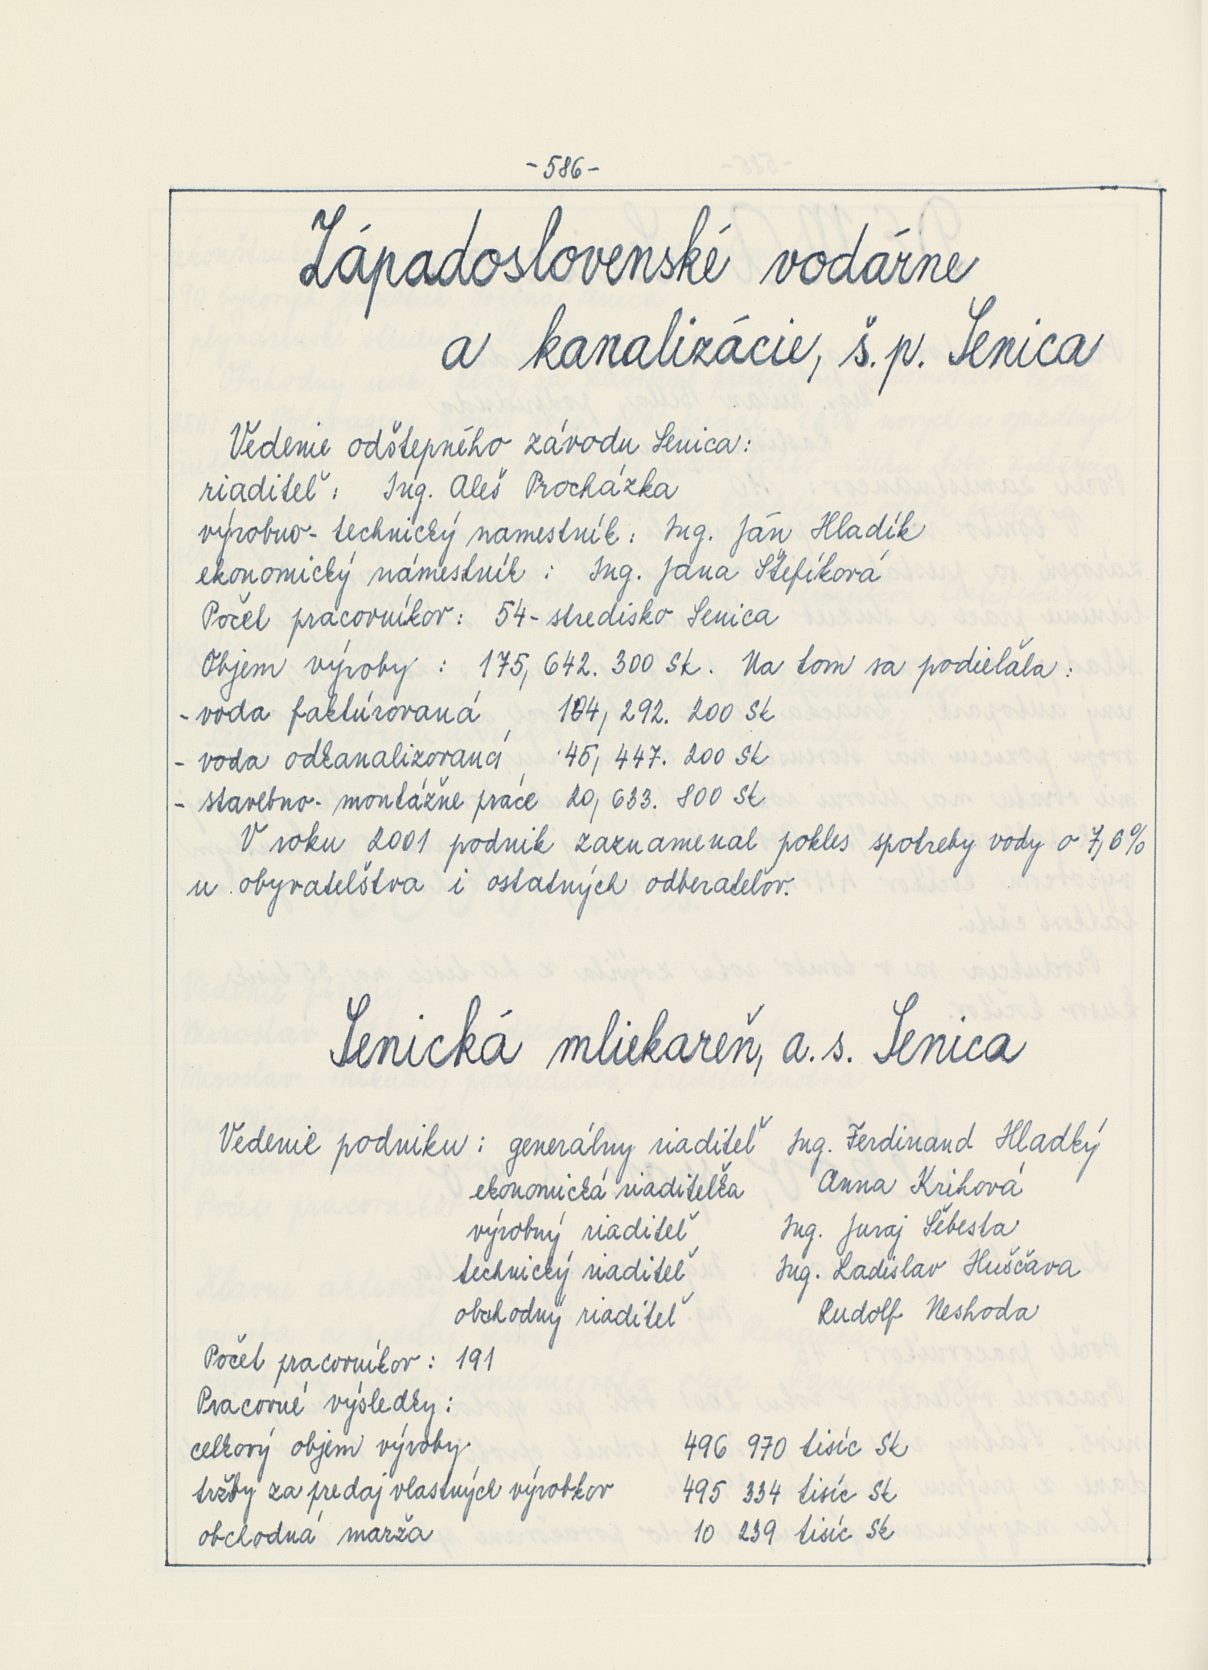 -586-
Západoslovenské vodárne
a kanalizácie, š.p. Senica
Vedenie odštepného závodu Senica:
riaditeľ: Ing. Aleš Procházka
výrobno-technický namestník: Ing. Ján Hladík
ekonomický námestník: Ing. Jana Štefíková
Počet pracovníkov: 54-stredisko Senica
Objem výroby: 175,642.300 Sk. Na tom sa podieľala:
- voda faktúrovaná 104,292.200 Sk
- voda odkanalizovaná 45,447.200 Sk
- stavebno-montážne práce 20,633.800 Sk
V roku 2001 podnik zaznamenal pokles spotreby vody o 7,6%
u obyvateľstva i ostatných odberateľov.
Senická mliekareň, a.s. Senica
Vedenie podniku: generálny riaditeľ Ing. Ferdinand Hladký
ekonomická riaditeľka Anna Krihová
výrobný riaditeľ Ing. Juraj Šebesta
technický riaditeľ Ing. Ladislav Huščava
obchodný riaditeľ Rudolf Neshoda
Počet pracovníkov: 191
Pracovné výsledky:
celkový objem výroby 496 970 tisíc Sk
tržby za predaj vlastných výrobkov 495 334 tisíc Sk
obchodná marža 10 239 tisíc Sk